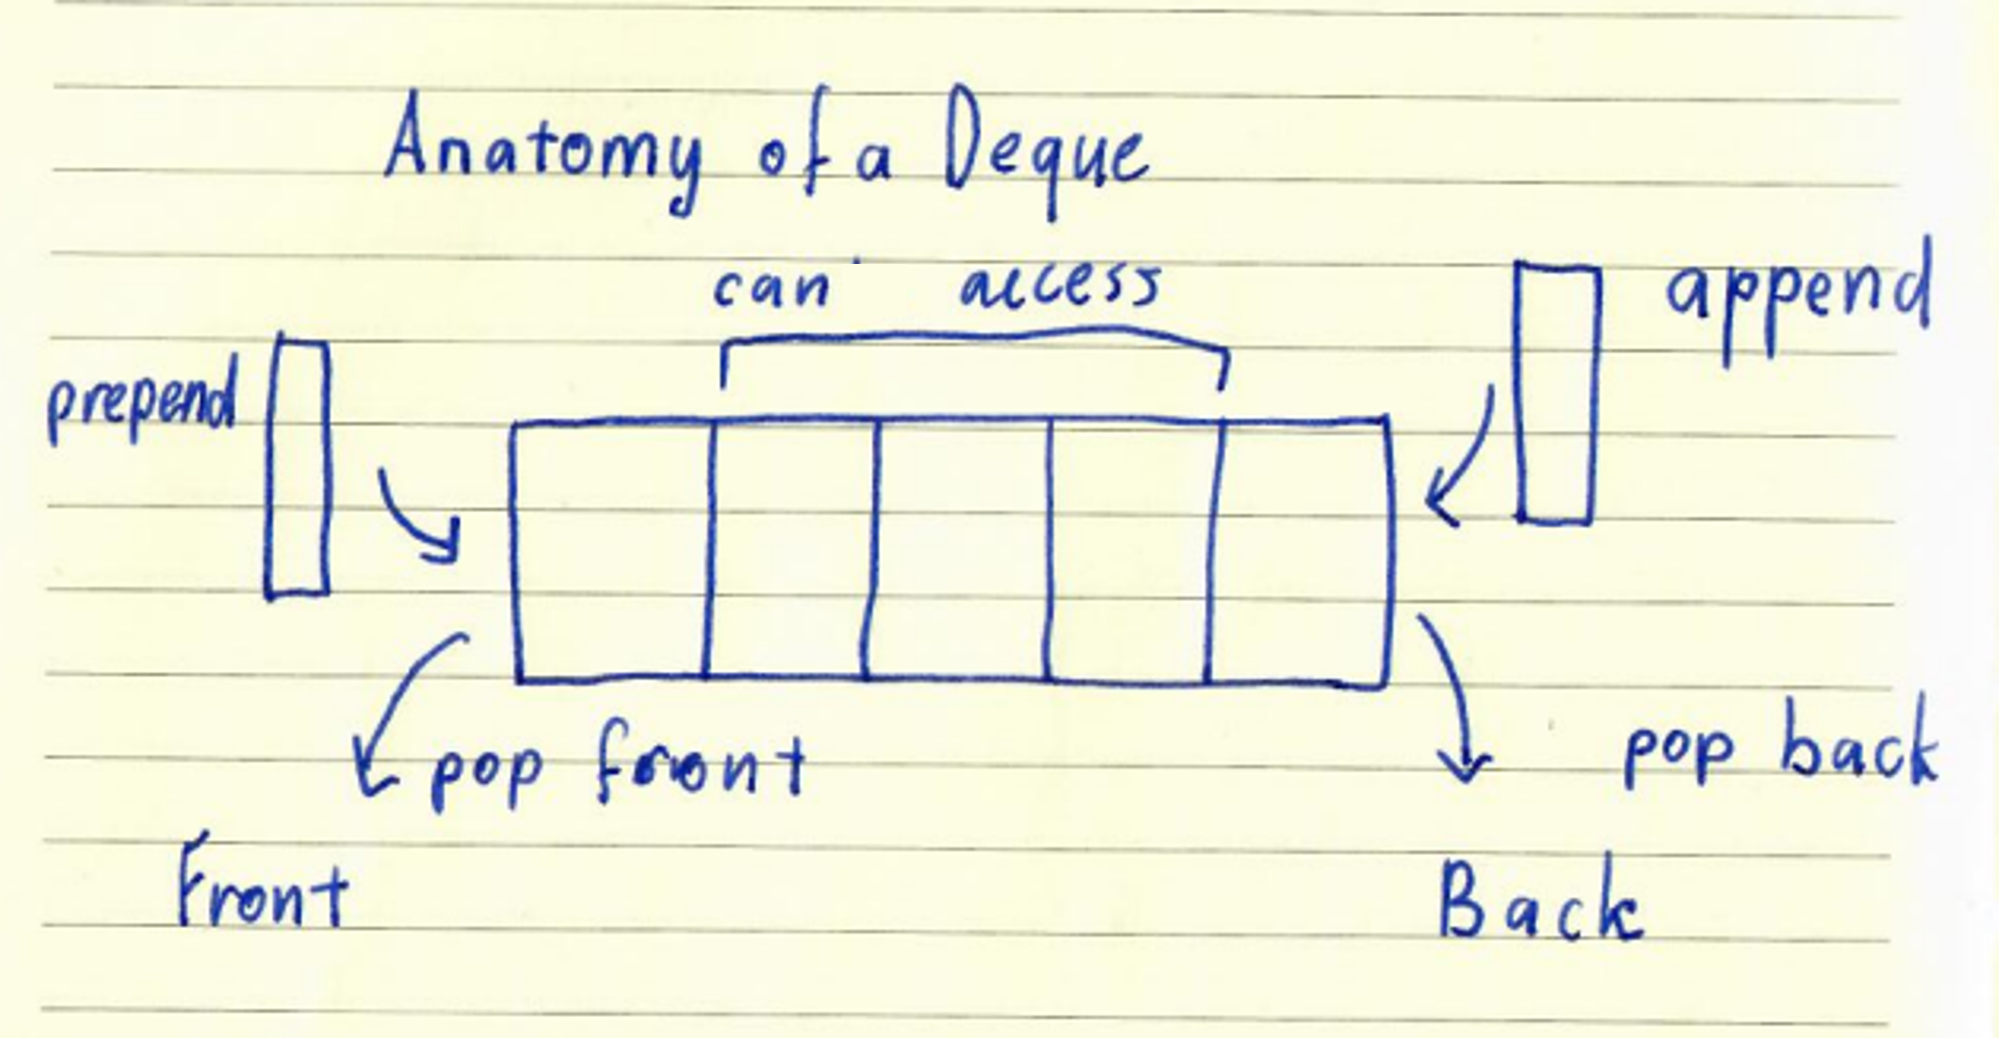 Anatomy of a Deque
can access
append
prepend
pop front
pop back
Front
Back